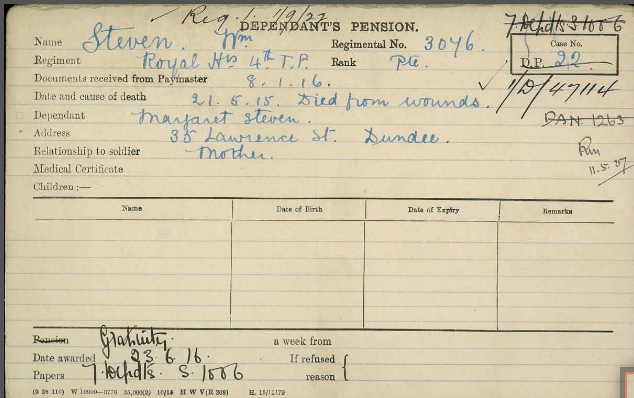 Reg. 1/9/27
7 Depd/s. S. 1006
DEPENDANT'S PENSION.
Name Steven. Wm Regimental No. 3046.
Case No.
Regiment Royal Hrs 4th T.F. Rank Pte. D.P. 22
Documents received from Paymaster 8.1.16.
1/D/47114
Date and cause of death 21.5.15. Died from wounds.
Dependant Margaret Steven. DAN 1263
Address 35 Lawrence St. Dundee.
Relationship to soldier Mother.
11.5.27
Medical Certificate
Children:—
Name Date of Birth Date of Expiry Remarks
Pension Gratuity. a week from
Date awarded 23.6.16. If refused
Papers 7 Depd/s. S. 1006 reason
(9 38 110) W 10900—3776 35,000(2) 10/15 H W V(R 308) H. 15/11179